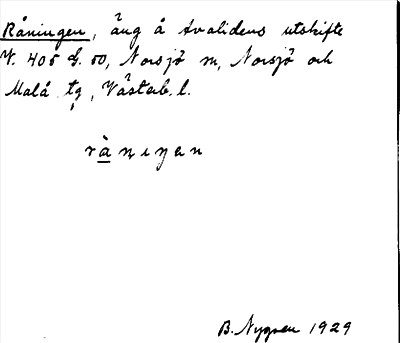 Råningen, äng å Avalidens utskifte
N. 405 S. 50, Norsjö sn, Norsjö och
Malå tg, Västerb. l.
ràniŋen
B. Nygren 1929